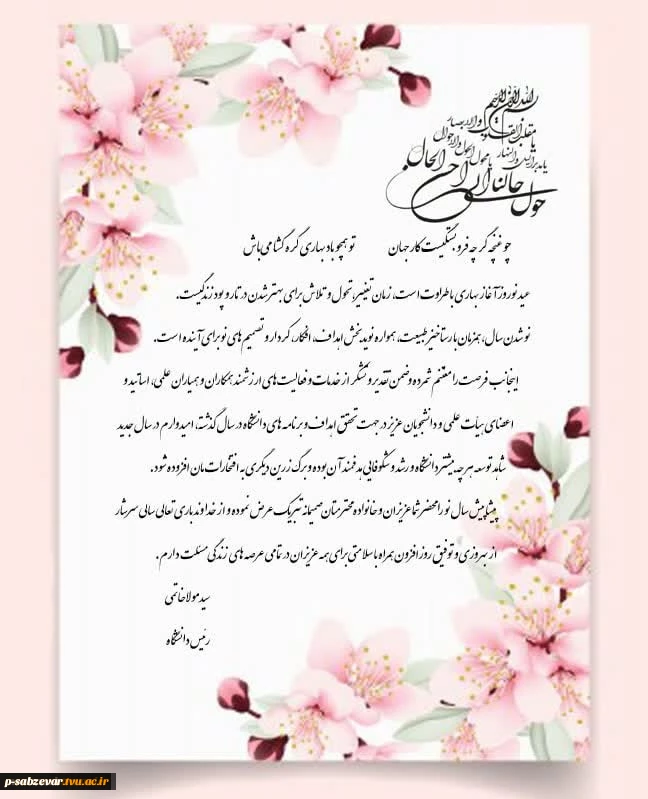 بسم الله الرحمن الرحیم
یا مقلب القلوب و الابصار
یا مدبر اللیل و النهار
یا محول الحول و الاحوال
حول حالنا الی احسن الحال
چو غنچه گرچه فروبستگیست کار جهان تو همچو باد بهاری گره گشا می باش
عید نوروز آغاز بهاری با طراوت است، زمان تغییر، تحول و تلاش برای بهتر شدن در تار و پود زندگیست.
نو شدن سال، همزمان با رستاخیز طبیعت، همواره نوید بخش اهداف، افکار، کردار و تصمیم های نو برای آینده است.
اینجانب فرصت را مغتنم شمرده و ضمن تقدیر و تشکر از خدمات و فعالیت های ارزشمند همکاران و همیاران علمی، اساتید و
اعضای هیأت علمی و دانشجویان عزیز در جهت تحقق اهداف و برنامه های دانشگاه در سال گذشته، امیدوارم در سال جدید
شاهد توسعه هر چه بیشتر دانشگاه و رشد و شکوفایی هدفمند آن بوده و برگ زرین دیگری به افتخارات مان افزوده شود.
پیشاپیش سال نو را محضر شما عزیزان و خانواده محترمتان صمیمانه تبریک عرض نموده و از خداوند باری تعالی سالی سرشار
از بهروزی و توفیق روز افزون همراه با سلامتی برای همه عزیزان در تمامی عرصه های زندگی مسئلت دارم.
سید مولا خاتمی
رئیس دانشگاه
p-sabzevar.tvu.ac.ir